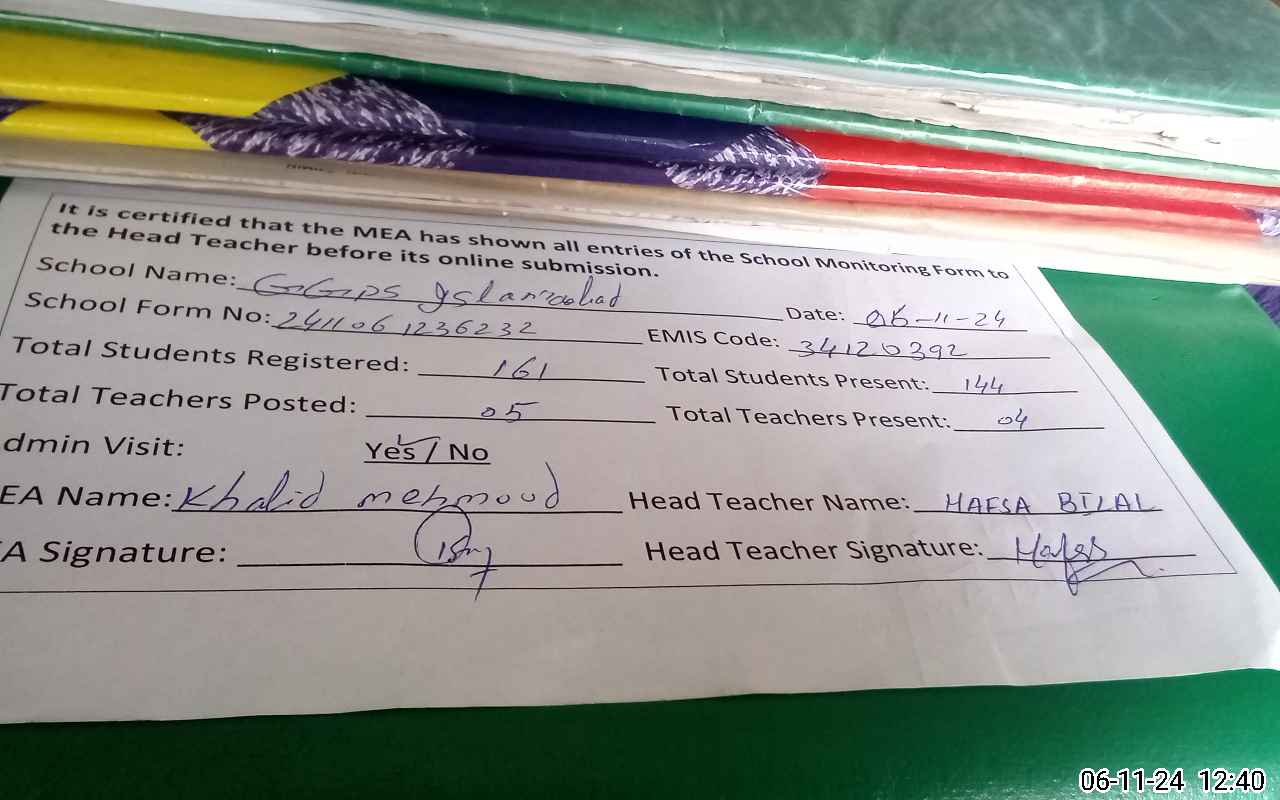 It is certified that the MEA has shown all entries of the School Monitoring Form to
the Head Teacher before its online submission.
School Name: GGPS Islamabad Date: 06-11-24
School Form No: 2411061236232 EMIS Code: 34120392
Total Students Registered: 161 Total Students Present: 144
Total Teachers Posted: 05 Total Teachers Present: 04
dmin Visit: Yes / No
EA Name: Khalid mehmood Head Teacher Name: HAFSA BILAL
A Signature: Head Teacher Signature: Hafsa
06-11-24 12:40